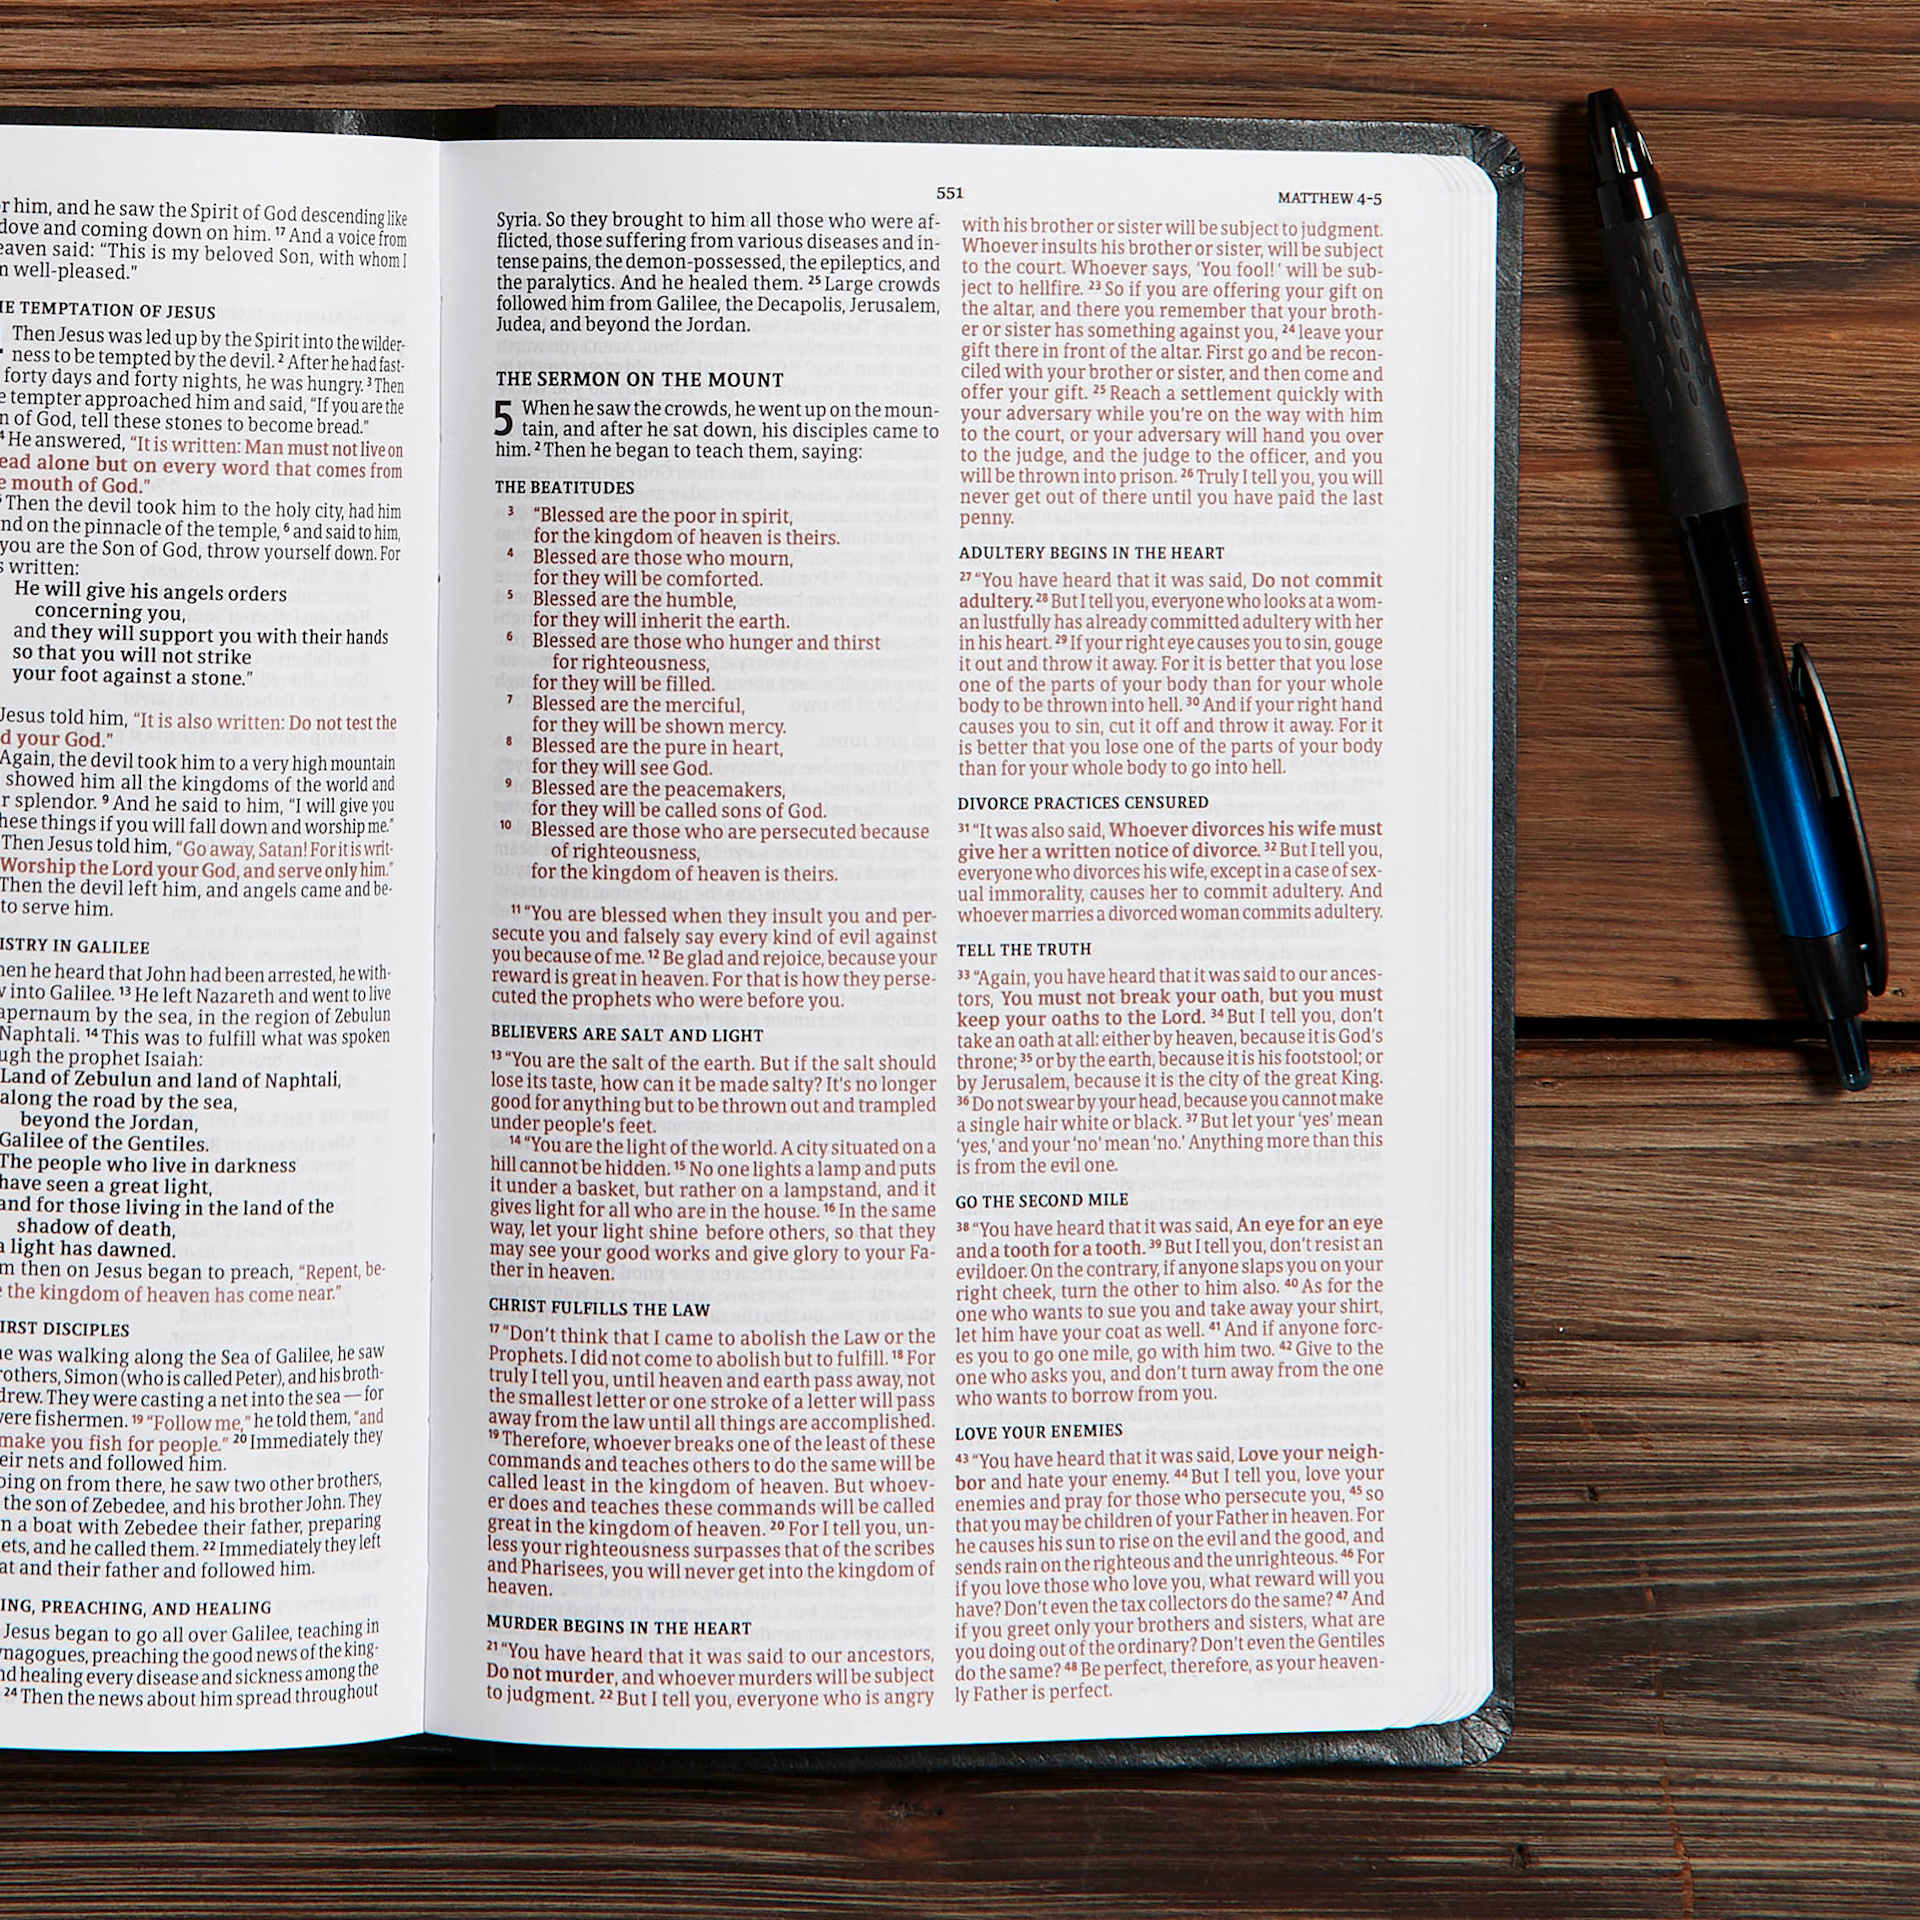 r him, and he saw the Spirit of God descending like
dove and coming down on him. 17 And a voice from
eaven said: “This is my beloved Son, with whom I
n well-pleased.”
E TEMPTATION OF JESUS
Then Jesus was led up by the Spirit into the wilder-
ness to be tempted by the devil. 2 After he had fast-
forty days and forty nights, he was hungry. 3 Then
e tempter approached him and said, “If you are the
n of God, tell these stones to become bread.”
4 He answered, “It is written: Man must not live on
ead alone but on every word that comes from
e mouth of God.”
Then the devil took him to the holy city, had him
nd on the pinnacle of the temple, 6 and said to him,
you are the Son of God, throw yourself down. For
s written:
He will give his angels orders
concerning you,
and they will support you with their hands
so that you will not strike
your foot against a stone.”
Jesus told him, “It is also written: Do not test the
d your God.”
Again, the devil took him to a very high mountain
showed him all the kingdoms of the world and
r splendor. 9 And he said to him, “I will give you
hese things if you will fall down and worship me.”
Then Jesus told him, “Go away, Satan! For it is writ-
Worship the Lord your God, and serve only him.”
Then the devil left him, and angels came and be-
to serve him.
ISTRY IN GALILEE
hen he heard that John had been arrested, he with-
w into Galilee. 13 He left Nazareth and went to live
apernaum by the sea, in the region of Zebulun
Naphtali. 14 This was to fulfill what was spoken
ugh the prophet Isaiah:
Land of Zebulun and land of Naphtali,
along the road by the sea,
beyond the Jordan,
Galilee of the Gentiles.
The people who live in darkness
have seen a great light,
and for those living in the land of the
shadow of death,
a light has dawned.
m then on Jesus began to preach, “Repent, be-
e the kingdom of heaven has come near.”
IRST DISCIPLES
he was walking along the Sea of Galilee, he saw
rothers, Simon (who is called Peter), and his broth-
drew. They were casting a net into the sea — for
were fishermen. 19 “Follow me,” he told them, “and
make you fish for people.” 20 Immediately they
eir nets and followed him.
oing on from there, he saw two other brothers,
the son of Zebedee, and his brother John. They
n a boat with Zebedee their father, preparing
ets, and he called them. 22 Immediately they left
at and their father and followed him.
ING, PREACHING, AND HEALING
Jesus began to go all over Galilee, teaching in
nagogues, preaching the good news of the king-
nd healing every disease and sickness among the
24 Then the news about him spread throughout
551
MATTHEW 4–5
Syria. So they brought to him all those who were af-
flicted, those suffering from various diseases and in-
tense pains, the demon-possessed, the epileptics, and
the paralytics. And he healed them. 25 Large crowds
followed him from Galilee, the Decapolis, Jerusalem,
Judea, and beyond the Jordan.
THE SERMON ON THE MOUNT
5 When he saw the crowds, he went up on the moun-
tain, and after he sat down, his disciples came to
him. 2 Then he began to teach them, saying:
THE BEATITUDES
3 “Blessed are the poor in spirit,
for the kingdom of heaven is theirs.
4 Blessed are those who mourn,
for they will be comforted.
5 Blessed are the humble,
for they will inherit the earth.
6 Blessed are those who hunger and thirst
for righteousness,
for they will be filled.
7 Blessed are the merciful,
for they will be shown mercy.
8 Blessed are the pure in heart,
for they will see God.
9 Blessed are the peacemakers,
for they will be called sons of God.
10 Blessed are those who are persecuted because
of righteousness,
for the kingdom of heaven is theirs.
11 “You are blessed when they insult you and per-
secute you and falsely say every kind of evil against
you because of me. 12 Be glad and rejoice, because your
reward is great in heaven. For that is how they perse-
cuted the prophets who were before you.
BELIEVERS ARE SALT AND LIGHT
13 “You are the salt of the earth. But if the salt should
lose its taste, how can it be made salty? It's no longer
good for anything but to be thrown out and trampled
under people's feet.
14 “You are the light of the world. A city situated on a
hill cannot be hidden. 15 No one lights a lamp and puts
it under a basket, but rather on a lampstand, and it
gives light for all who are in the house. 16 In the same
way, let your light shine before others, so that they
may see your good works and give glory to your Fa-
ther in heaven.
CHRIST FULFILLS THE LAW
17 “Don't think that I came to abolish the Law or the
Prophets. I did not come to abolish but to fulfill. 18 For
truly I tell you, until heaven and earth pass away, not
the smallest letter or one stroke of a letter will pass
away from the law until all things are accomplished.
19 Therefore, whoever breaks one of the least of these
commands and teaches others to do the same will be
called least in the kingdom of heaven. But whoev-
er does and teaches these commands will be called
great in the kingdom of heaven. 20 For I tell you, un-
less your righteousness surpasses that of the scribes
and Pharisees, you will never get into the kingdom of
heaven.
MURDER BEGINS IN THE HEART
21 “You have heard that it was said to our ancestors,
Do not murder, and whoever murders will be subject
to judgment. 22 But I tell you, everyone who is angry
with his brother or sister will be subject to judgment.
Whoever insults his brother or sister, will be subject
to the court. Whoever says, ‘You fool!’ will be sub-
ject to hellfire. 23 So if you are offering your gift on
the altar, and there you remember that your broth-
er or sister has something against you, 24 leave your
gift there in front of the altar. First go and be recon-
ciled with your brother or sister, and then come and
offer your gift. 25 Reach a settlement quickly with
your adversary while you're on the way with him
to the court, or your adversary will hand you over
to the judge, and the judge to the officer, and you
will be thrown into prison. 26 Truly I tell you, you will
never get out of there until you have paid the last
penny.
ADULTERY BEGINS IN THE HEART
27 “You have heard that it was said, Do not commit
adultery. 28 But I tell you, everyone who looks at a wom-
an lustfully has already committed adultery with her
in his heart. 29 If your right eye causes you to sin, gouge
it out and throw it away. For it is better that you lose
one of the parts of your body than for your whole
body to be thrown into hell. 30 And if your right hand
causes you to sin, cut it off and throw it away. For it
is better that you lose one of the parts of your body
than for your whole body to go into hell.
DIVORCE PRACTICES CENSURED
31 “It was also said, Whoever divorces his wife must
give her a written notice of divorce. 32 But I tell you,
everyone who divorces his wife, except in a case of sex-
ual immorality, causes her to commit adultery. And
whoever marries a divorced woman commits adultery.
TELL THE TRUTH
33 “Again, you have heard that it was said to our ances-
tors, You must not break your oath, but you must
keep your oaths to the Lord. 34 But I tell you, don't
take an oath at all: either by heaven, because it is God's
throne; 35 or by the earth, because it is his footstool; or
by Jerusalem, because it is the city of the great King.
36 Do not swear by your head, because you cannot make
a single hair white or black. 37 But let your ‘yes’ mean
‘yes,’ and your ‘no’ mean ‘no.’ Anything more than this
is from the evil one.
GO THE SECOND MILE
38 “You have heard that it was said, An eye for an eye
and a tooth for a tooth. 39 But I tell you, don't resist an
evildoer. On the contrary, if anyone slaps you on your
right cheek, turn the other to him also. 40 As for the
one who wants to sue you and take away your shirt,
let him have your coat as well. 41 And if anyone forc-
es you to go one mile, go with him two. 42 Give to the
one who asks you, and don't turn away from the one
who wants to borrow from you.
LOVE YOUR ENEMIES
43 “You have heard that it was said, Love your neigh-
bor and hate your enemy. 44 But I tell you, love your
enemies and pray for those who persecute you, 45 so
that you may be children of your Father in heaven. For
he causes his sun to rise on the evil and the good, and
sends rain on the righteous and the unrighteous. 46 For
if you love those who love you, what reward will you
have? Don't even the tax collectors do the same? 47 And
if you greet only your brothers and sisters, what are
you doing out of the ordinary? Don't even the Gentiles
do the same? 48 Be perfect, therefore, as your heaven-
ly Father is perfect.